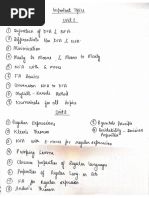 Important Topics
Unit I
① Definition of DFA & NFA
② Differentiate b/w DFA & NFA
③ Minimization
④ Mealy to Moore & Moore to Mealy
⑤ NFA with ε moves
⑥ FA Basics
⑦ Conversion NFA to DFA
⑧ Myhill - Nerode
⑨ Numericals for all Topics
Unit 2
① Regular Expressions
② Kleen's Theorem
③ NFA with ε moves for regular expression
④ Pumping Lemma
⑤ Closure Properties of Regular Languages
⑥ Properties of Regular Lang. as
⑦ FA for Regular Expression
⑧ Arden's Theorem
⑨
⑩ Decidability - Decision Properties